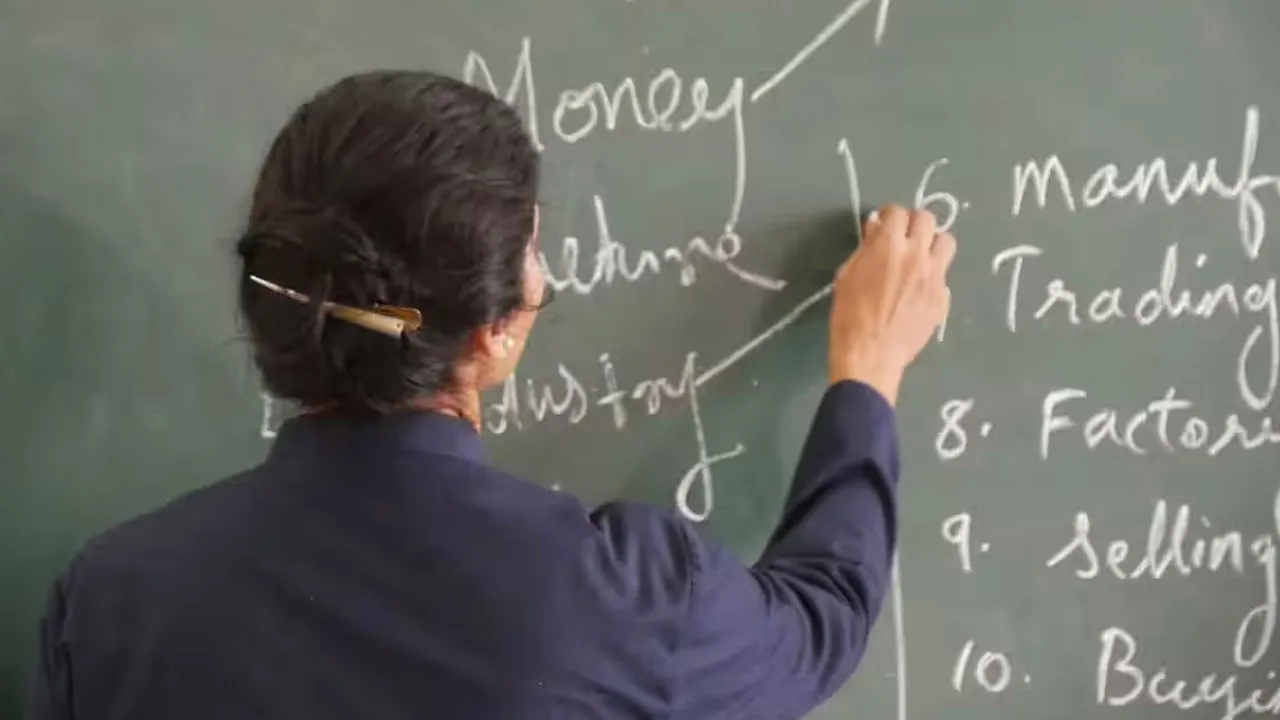 Money
dustry
6. Manuf
Trading
8. Factori
9. Selling
10. Buyi